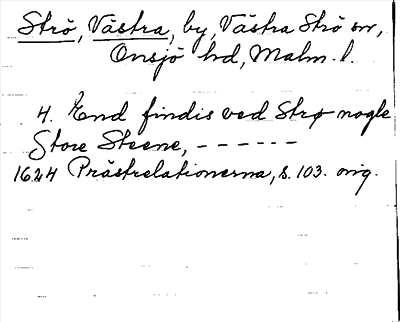 Strö, Västra, by, Västra Strö sn,
Onsjö hd, Malm. l.
4. End findis ved Strø nogle
Store Steene, - - - - - -
1624 Prästrelationerna, s. 103. orig.